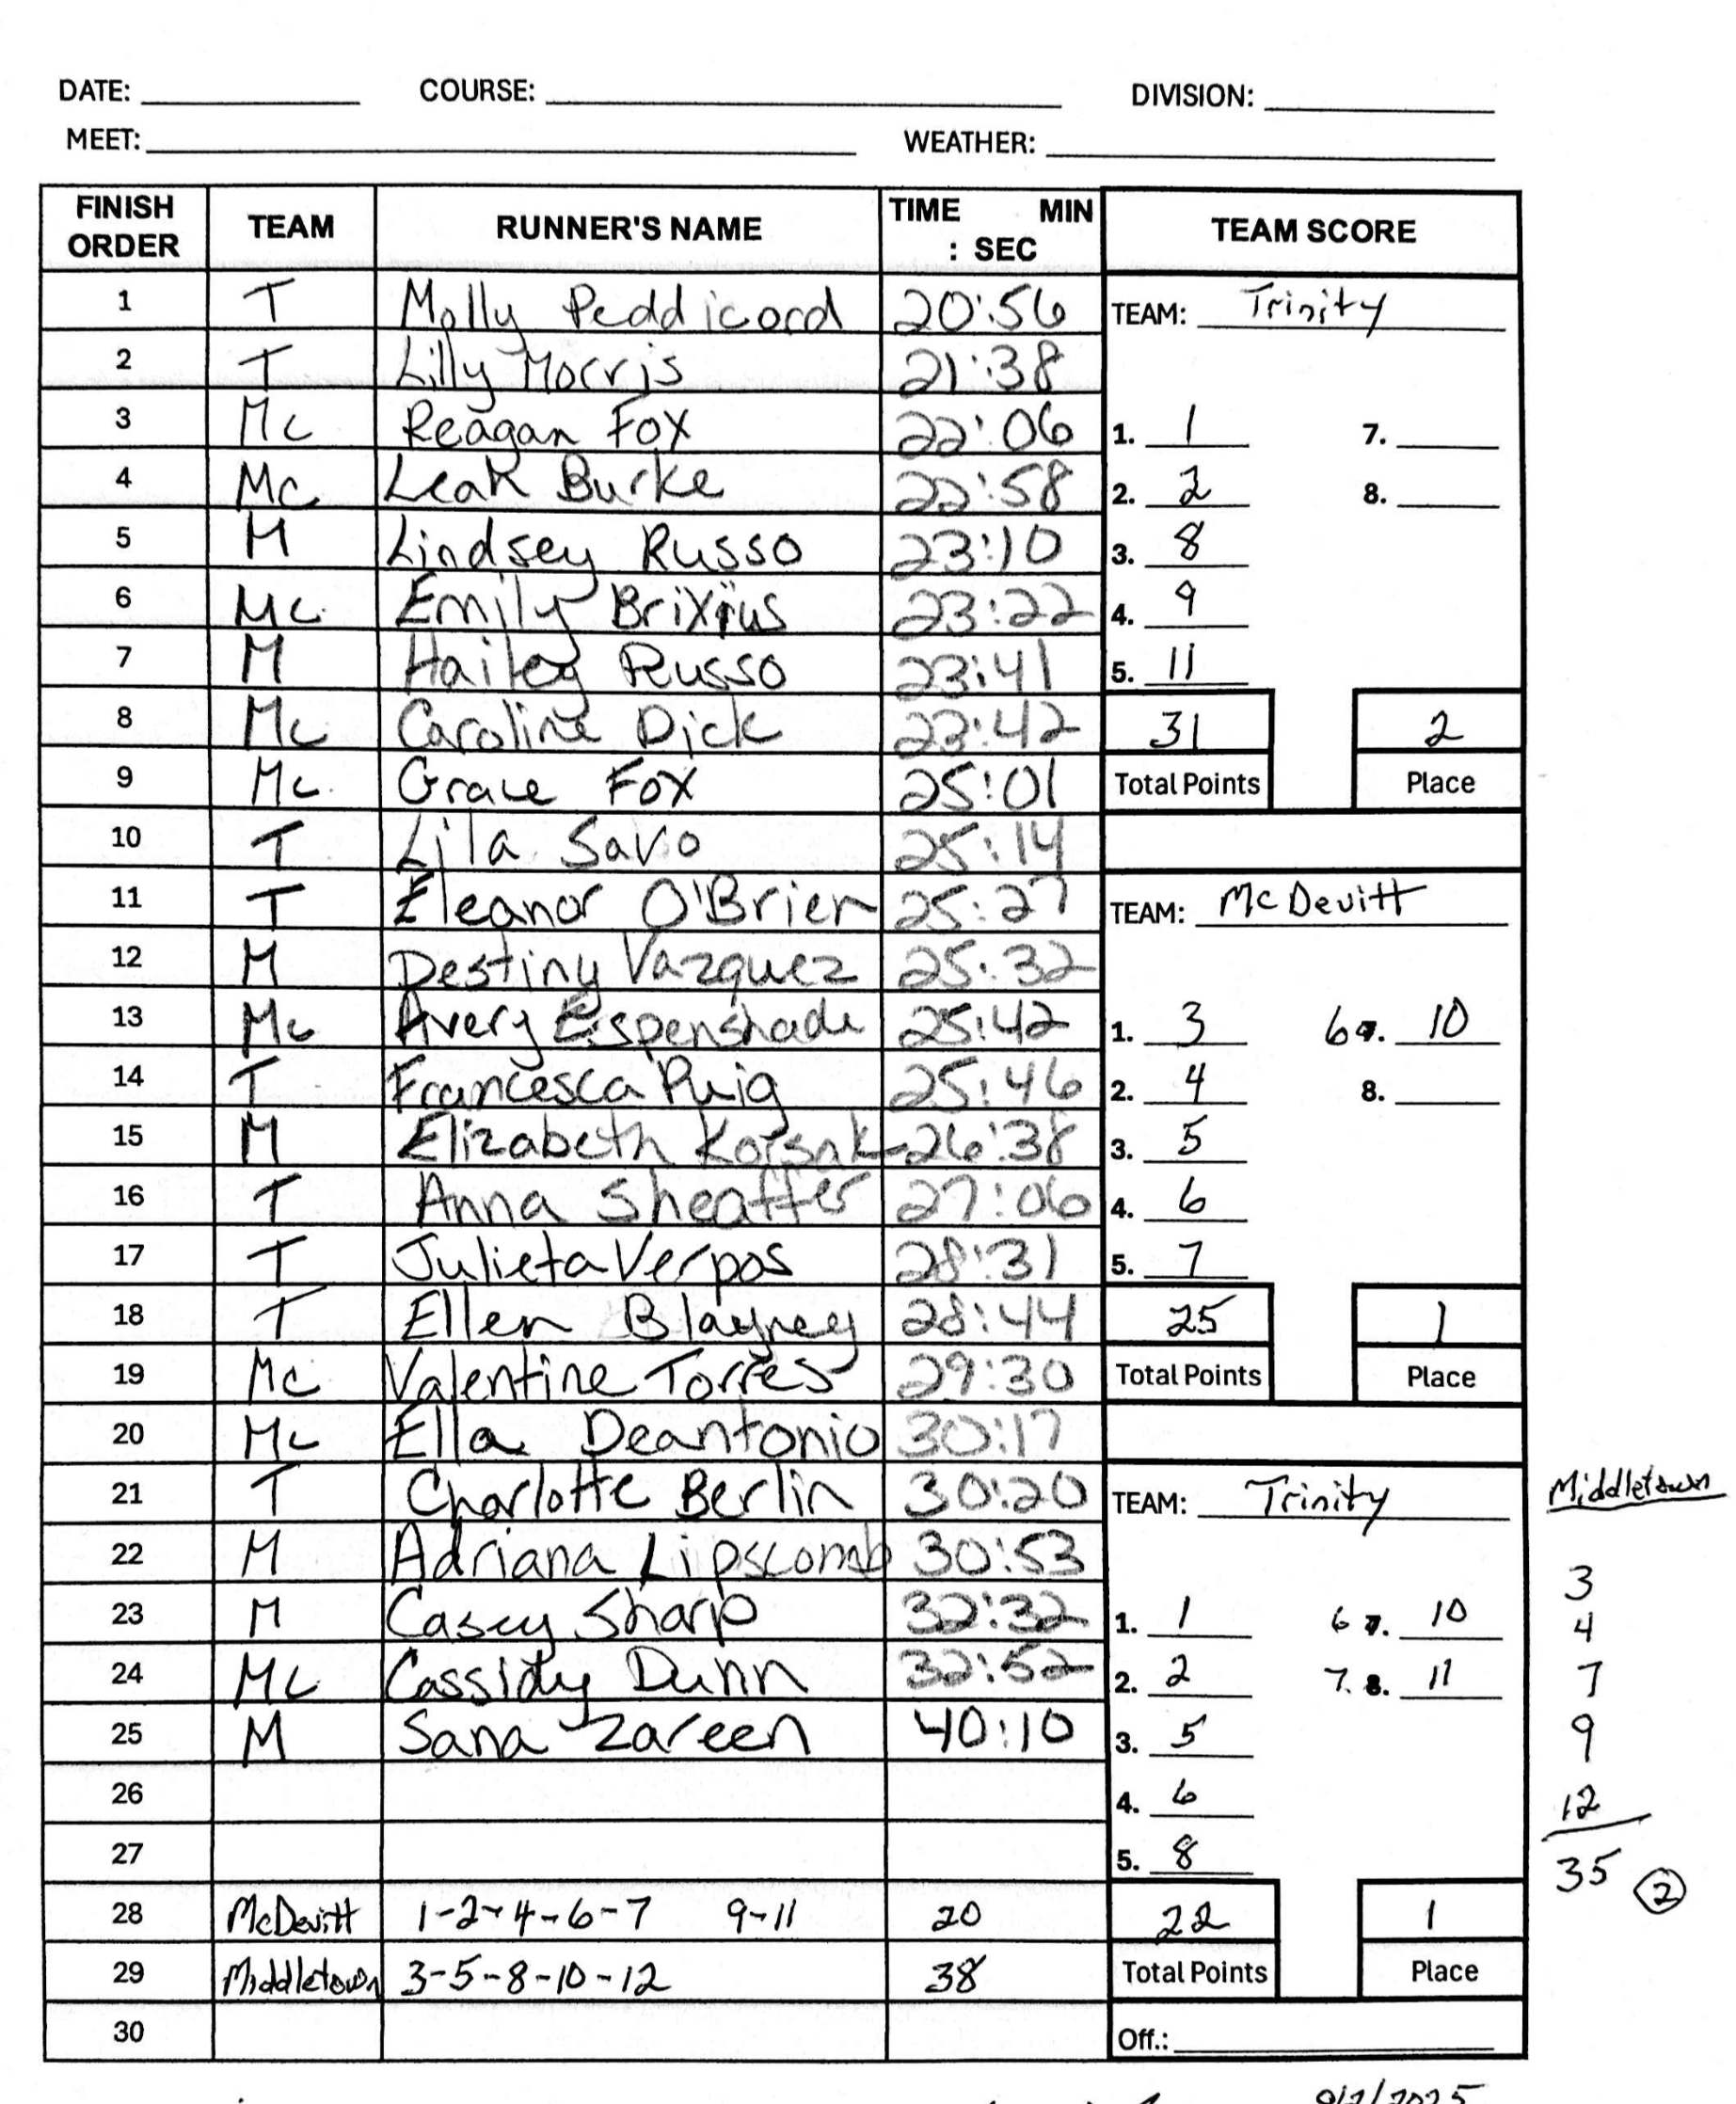 DATE: COURSE: DIVISION:
MEET: WEATHER:
FINISH ORDER TEAM RUNNER'S NAME TIME MIN : SEC TEAM SCORE
1 T Molly Peddicord 20:56
2 T Lilly Morris 21:38
3 Mc Reagan Fox 22:06
4 Mc Leah Burke 22:58
5 M Lindsey Russo 23:10
6 Mc Emily Brixius 23:22
7 M Hailey Russo 23:41
8 Mc Caroline Dick 23:42
9 Mc Grace Fox 25:01
10 T Lila Savo 25:14
11 T Eleanor O'Brien 25:27
12 M Destiny Vazquez 25:32
13 Mc Avery Espenshade 25:42
14 T Francesca Puig 25:46
15 M Elizabeth 26:38
16 T Anna Sheaffer 27:06
17 T Julieta Verpos 28:31
18 T Ellen Blayney 28:44
19 Mc Valentine Torres 29:30
20 Mc Ella Deantonio 30:17
21 T Charlotte Berlin 30:20
22 M Adriana Lipscomb 30:53
23 M Casey Sharp 32:32
24 Mc Cassidy Dunn 32:52
25 M Sana Zareen 40:10
26
27
28 McDevitt 1-2-4-6-7 9-11 20
29 Middletown 3-5-8-10-12 38
30
TEAM: Trinity
1. 1 7.
2. 2 8.
3. 8
4. 9
5. 11
31 2
Total Points Place
TEAM: McDevitt
1. 3 6 7. 10
2. 4 8.
3. 5
4. 6
5. 7
25 1
Total Points Place
TEAM: Trinity
1. 1 6 7. 10
2. 2 7. 8. 11
3. 5
4. 6
5. 8
22 1
Total Points Place
Off.:
Middletown
3
4
7
9
12
35 2
9/2/2025